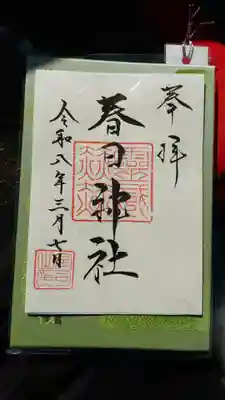 奉拝
春日神社
令和八年三月七日